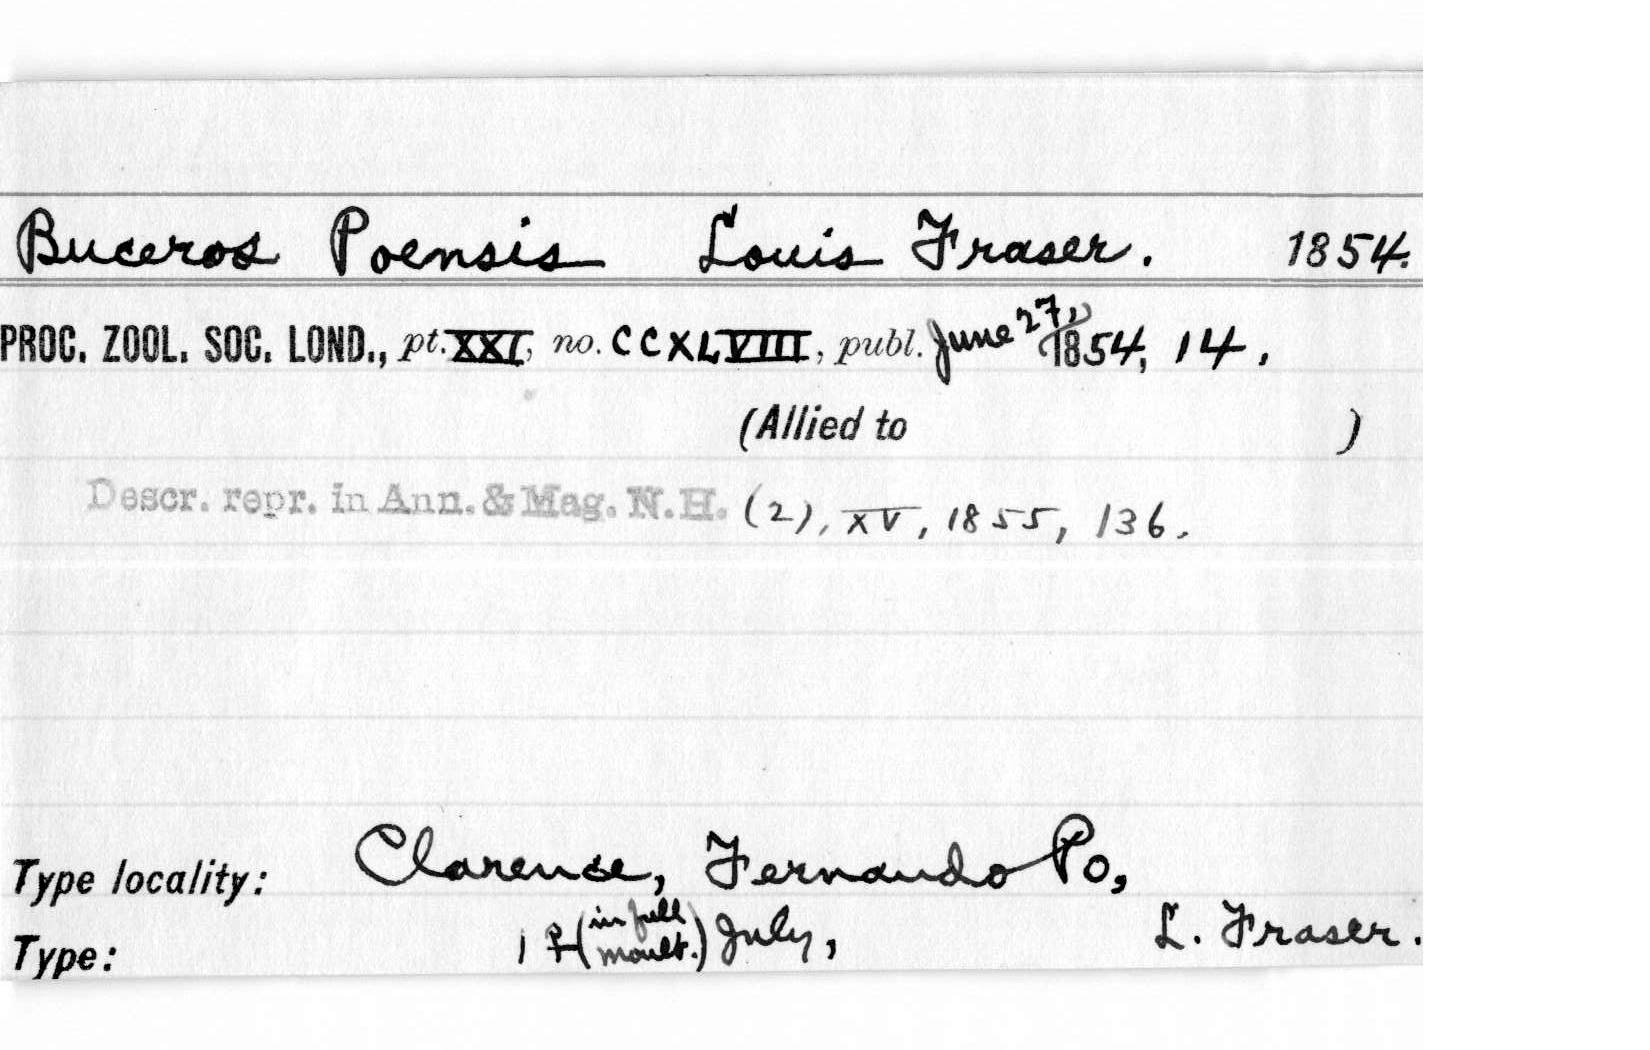 Buceros Poensis Louis Fraser. 1854.
PROC. ZOOL. SOC. LOND., pt. XXI, no. CCXLVIII, publ. June 27, 1854, 14.
(Allied to )
Descr. repr. in Ann. & Mag. N.H. (2), XV, 1855, 136.
Type locality: Clarence, Fernando Po,
Type: 1 ♀ (in full moult.) July, L. Fraser.